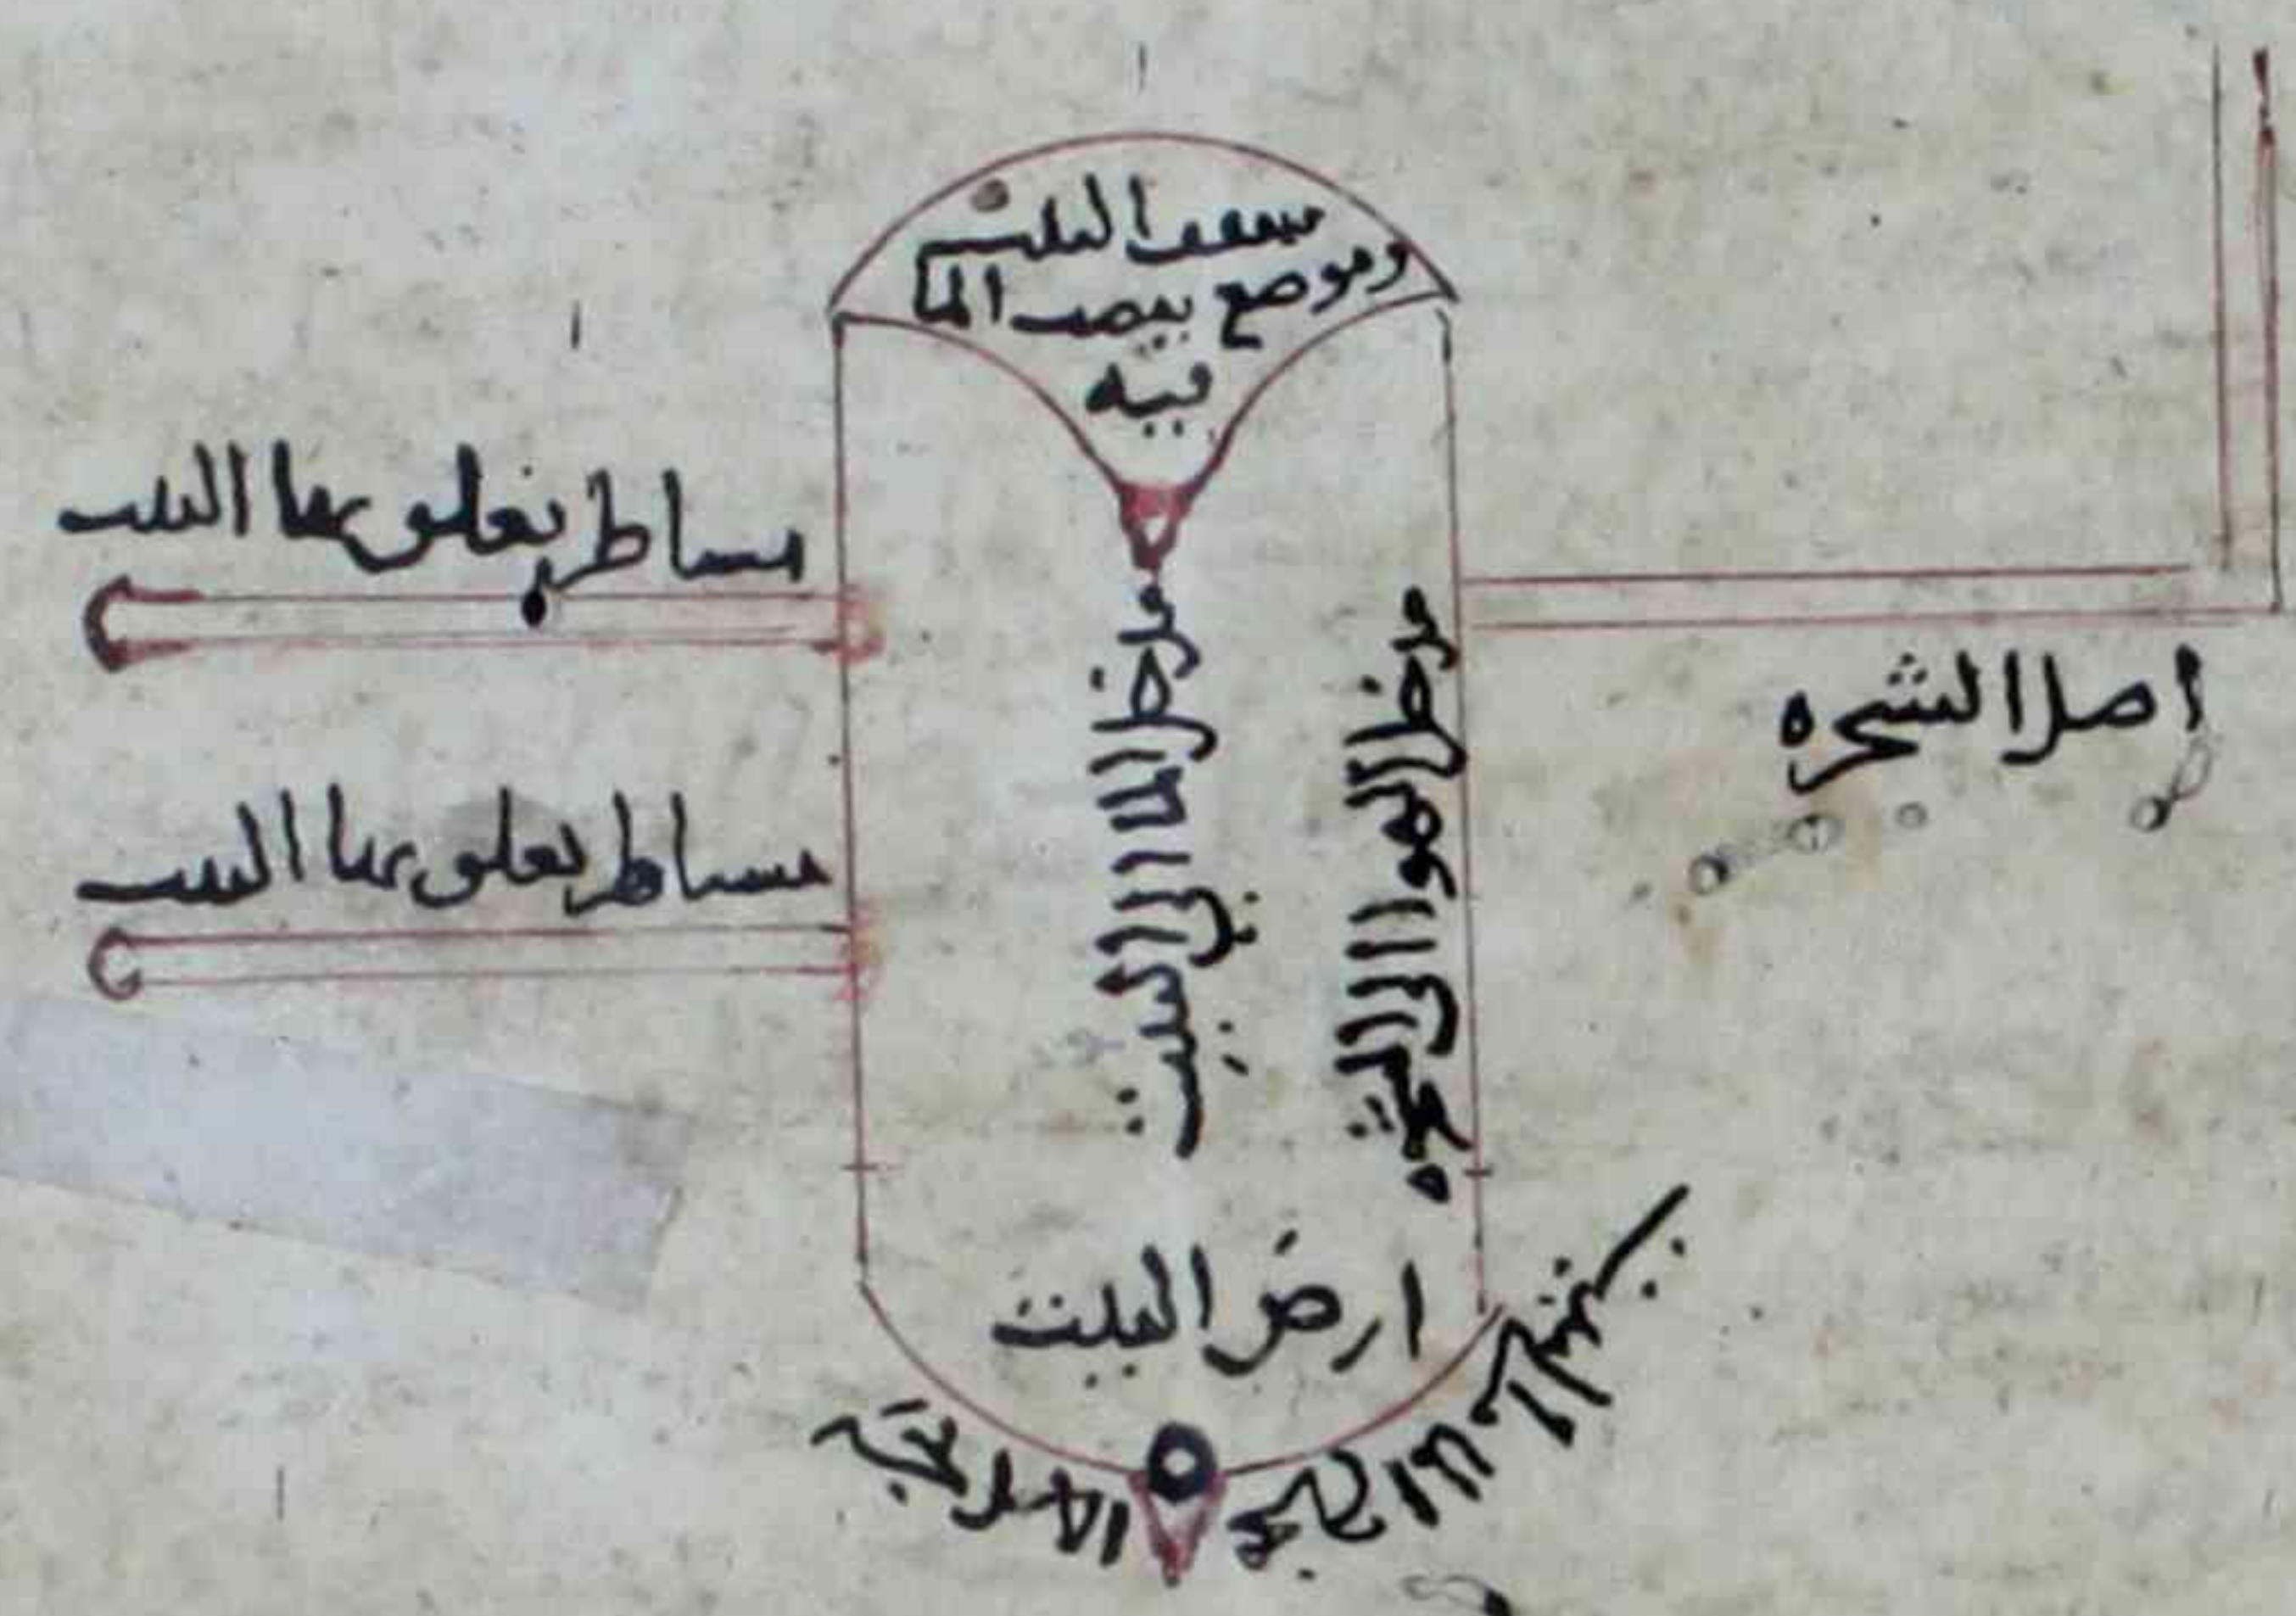 سقف البيت
وموضع يصب الما
فيه
مساطر يعلق بها البيت
مساطر يعلق بها البيت
مدخل الما الى البيت
مدخل الهوا الى الشجره
اصل الشجره
ارض البيت
ينزل الما الى